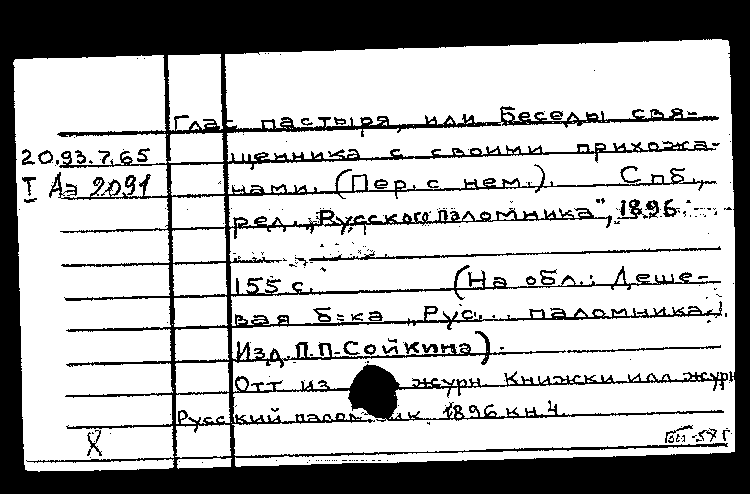 Глас пастыря, или Беседы свя-
20.93.7.65 щенника с своими прихожа-
I Аз 2091 нами. (Пер. с нем.). Спб.,
ред. „Русского паломника", 1896.
155 с. (На обл.: Деше-
вая б=ка „Рус... паломника."
Изд. П.П.Сойкина).
Отт из журн Книжки илл журн
Русский паломник 1896 кн.4.
X